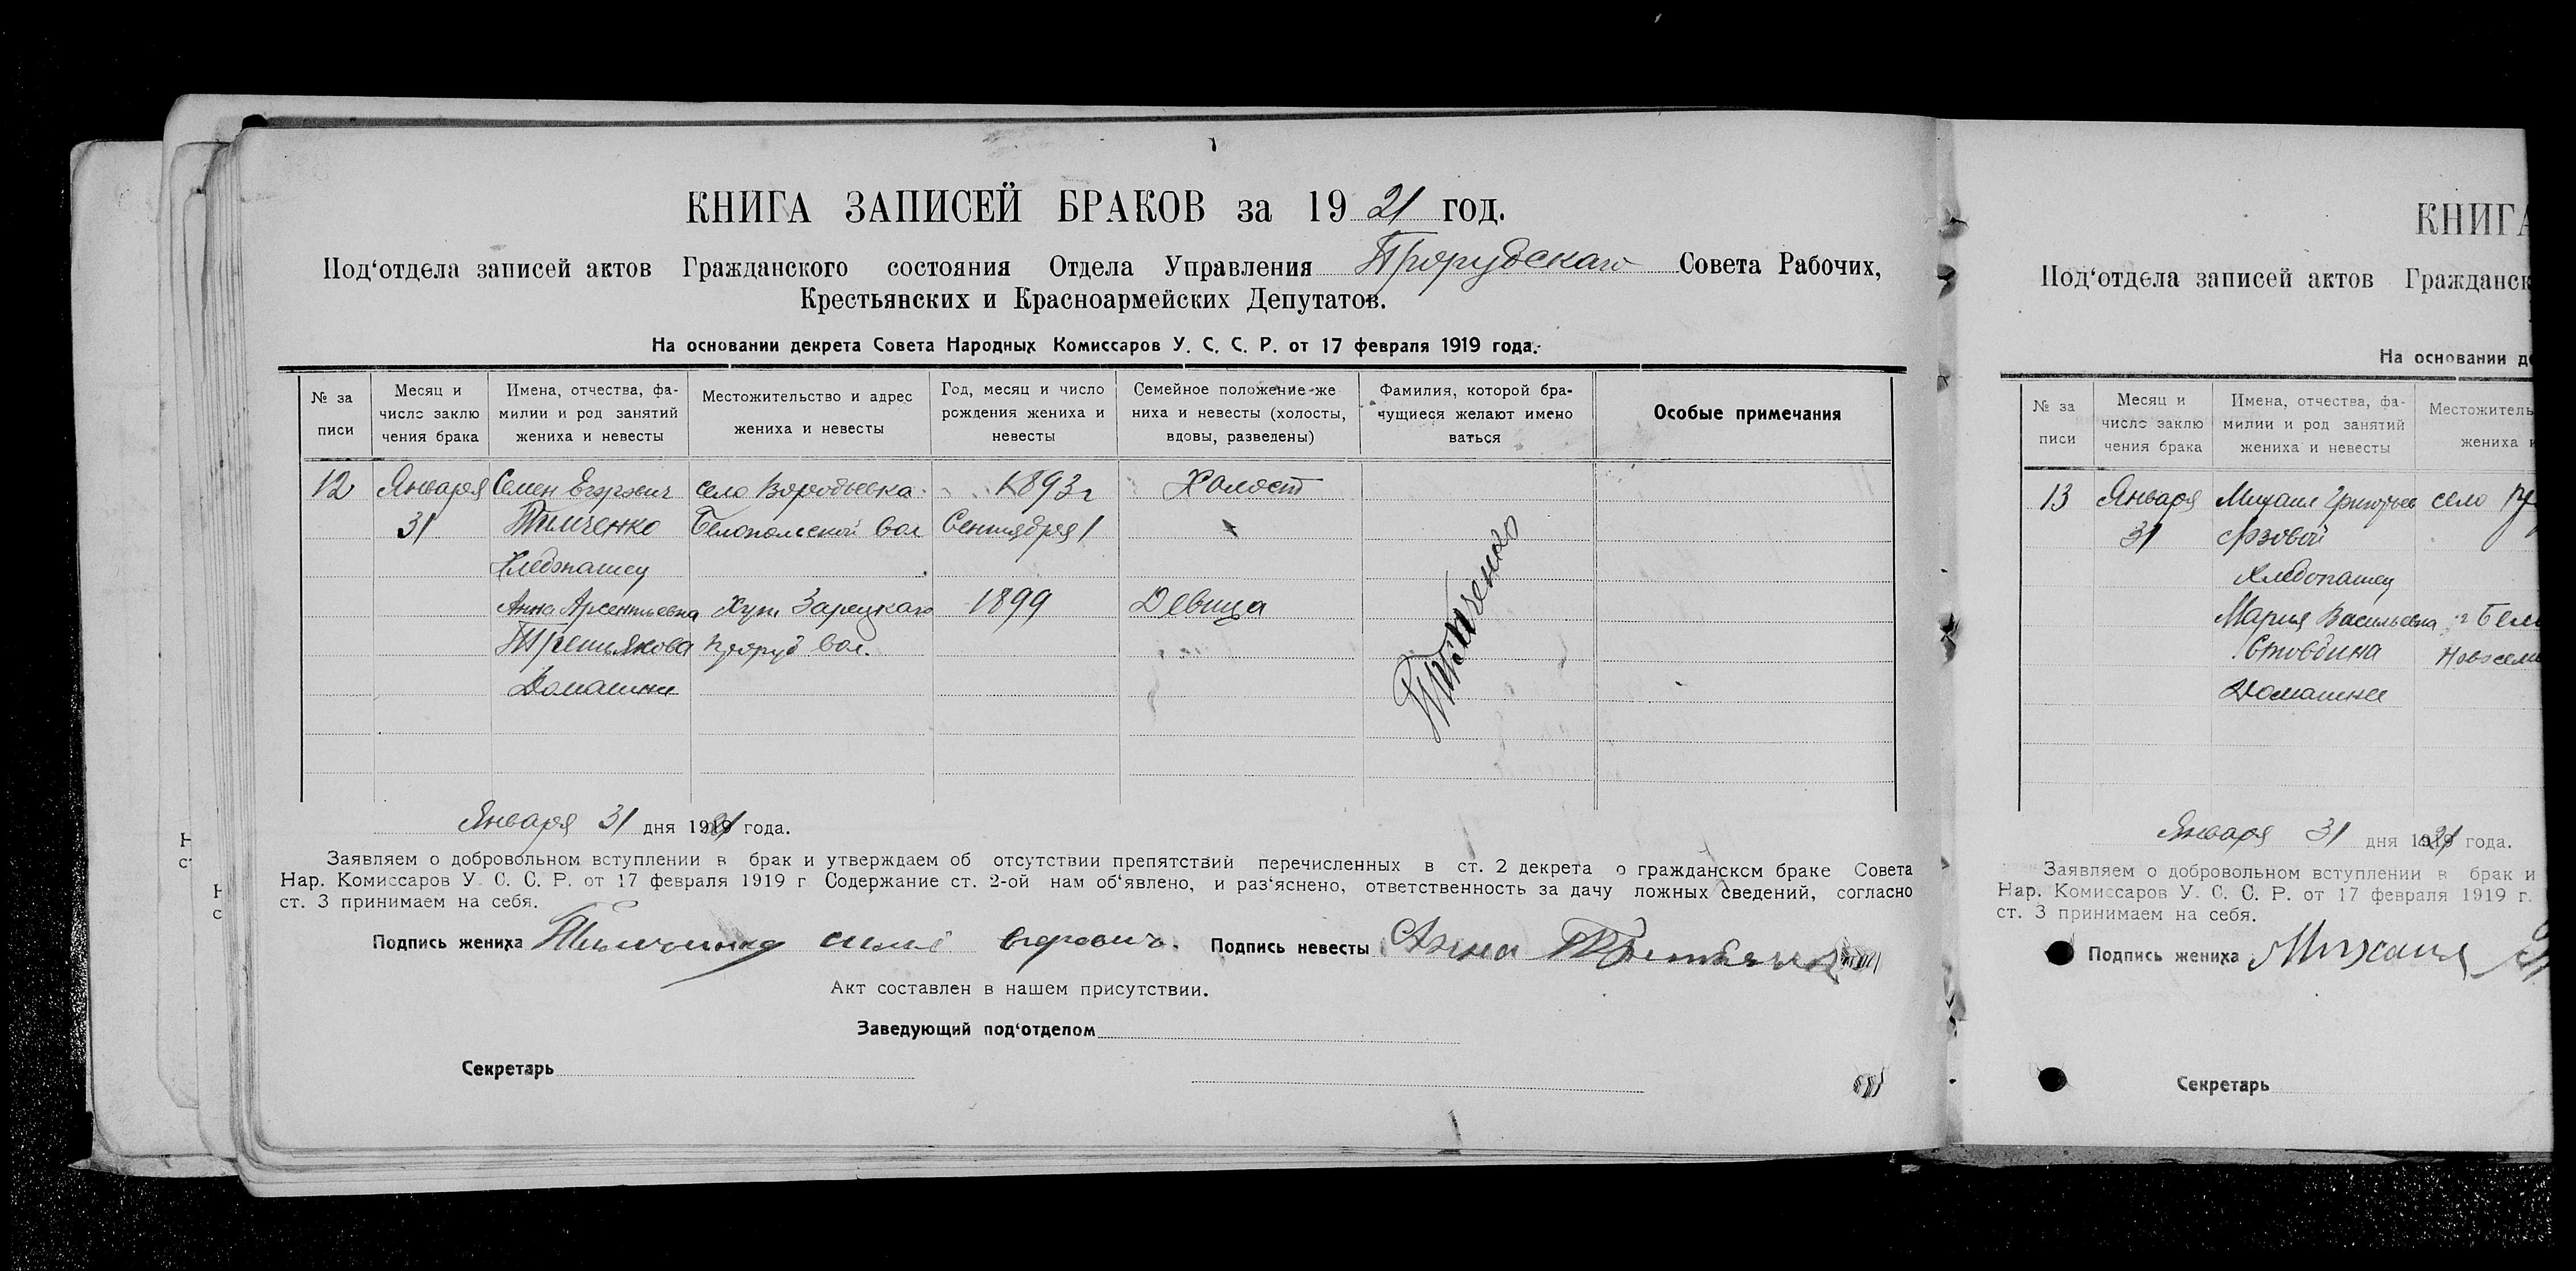 КНИГА ЗАПИСЕЙ БРАКОВ за 1921 год.
Под‘отдела записей актов Гражданского состояния Отдела Управления Прорубскаго Совета Рабочих,
Крестьянских и Красноармейских Депутатов.
На основании декрета Совета Народных Комиссаров У. С. С. Р. от 17 февраля 1919 года.
№ за
писи
Месяц и
число заклю
чения брака
Имена, отчества, фа-
милии и род занятий
жениха и невесты
Местожительство и адрес
жениха и невесты
Год, месяц и число
рождения жениха и
невесты
Семейное положение же
ниха и невесты (холосты,
вдовы, разведены)
Фамилия, которой бра-
чущиеся желают имено
ваться
Особые примечания
12 Января Семен Егорович село Воробьевка 1893 г Холост
31 Тимченко Белопольской вол Сентября 1
Хлебопашец
Анна Арсентьевна Хут Зарецкаго 1899 Девица
Третьякова Проруб вол.
Домашние
Тимченко
Января 31 дня 1921 года.
Заявляем о добровольном вступлении в брак и утверждаем об отсутствии препятствий перечисленных в ст. 2 декрета о гражданском браке Совета
Нар. Комиссаров У. С. С. Р. от 17 февраля 1919 г Содержание ст. 2-ой нам об‘явлено, и раз‘яснено, ответственность за дачу ложных сведений, согласно
ст. 3 принимаем на себя.
Подпись жениха Егорович. Подпись невесты Анна
Акт составлен в нашем присутствии.
Заведующий под‘отделом
Секретарь
КНИГА
Под‘отдела записей актов Гражданск
На основании де
№ за
писи
Месяц и
число заклю
чения брака
Имена, отчества, фа-
милии и род занятий
жениха и невесты
Местожитель
жениха и
13 Января Михаил Григорьев село
31 Язовой
Хлебопашец
Мария Васильевна г Бело
Домашнее Новосели
Января 31 дня 1921 года.
Заявляем о добровольном вступлении в брак и
Нар. Комиссаров У. С. С. Р. от 17 февраля 1919 г.
ст. 3 принимаем на себя.
Подпись жениха Михаил
Секретарь